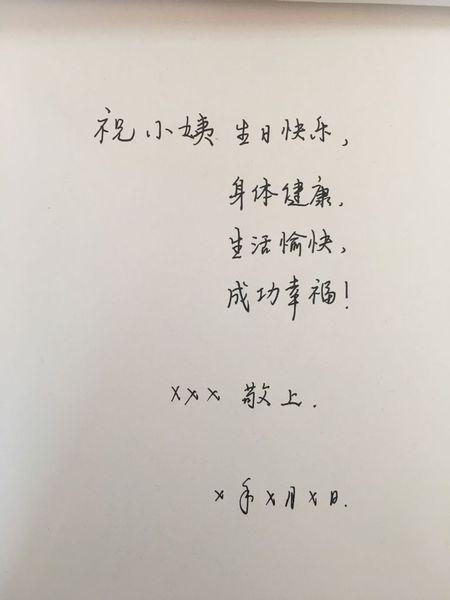 祝小姨生日快乐,
身体健康,
生活愉快,
成功幸福!
xxx 敬上.
x年x月x日.